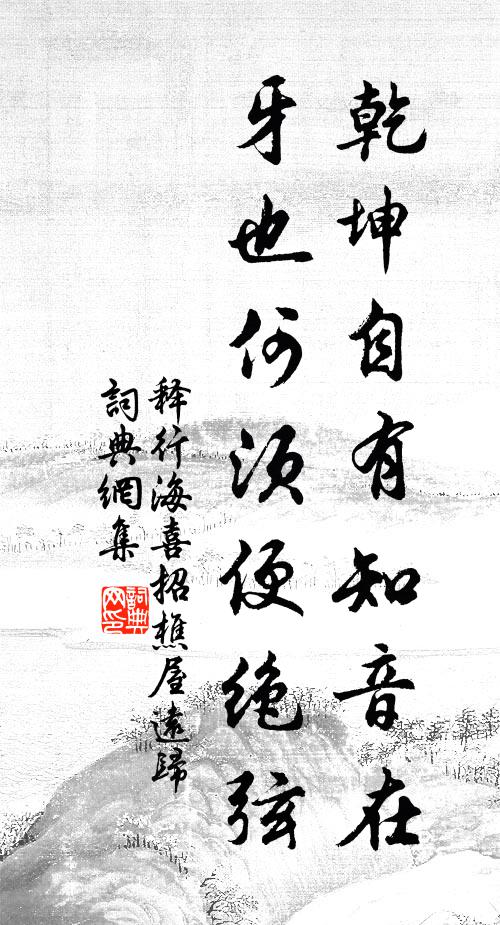 乾坤自有知音在
牙也何須便絶弦
释行海喜招樵屋遠歸
詞典網集
詞典网印